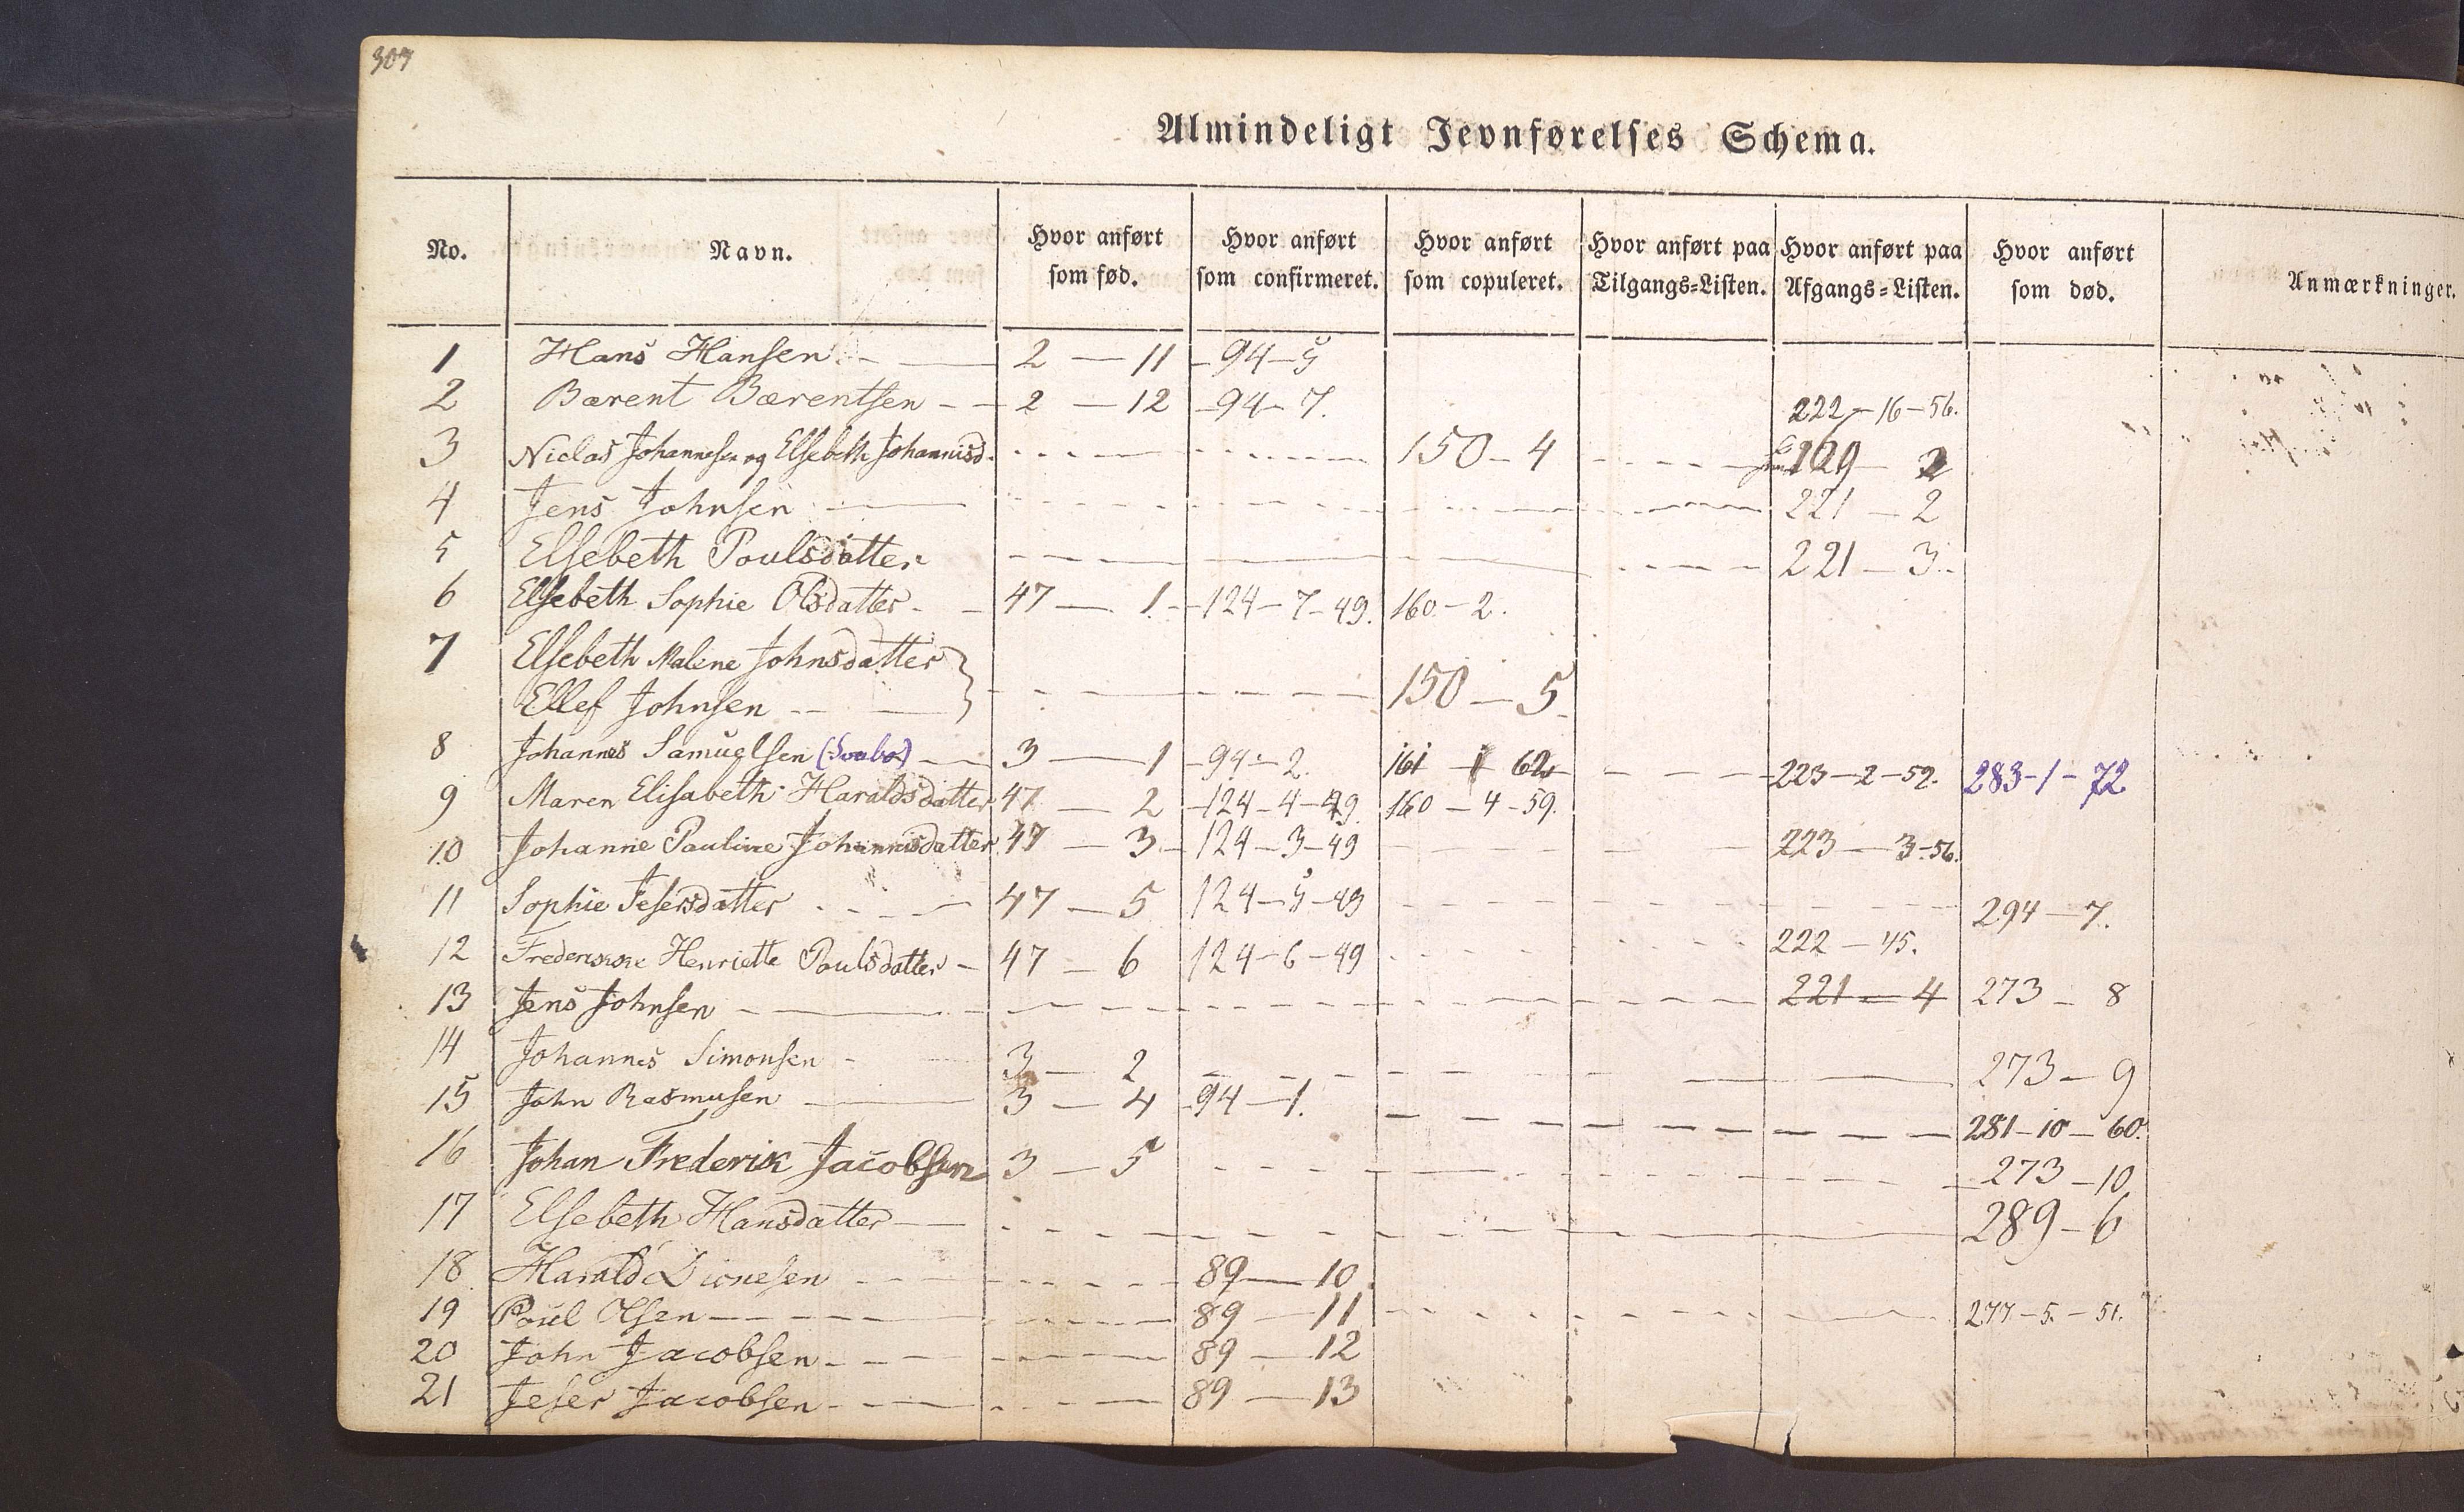 307
Almindeligt Jevnførelses Schema.
No. Navn. Hvor anført som fød. Hvor anført som confirmeret. Hvor anført som copuleret. Hvor anført paa Tilgangs-Listen. Hvor anført paa Afgangs-Listen. Hvor anført som død. Anmærkninger.
1 Hans Hansen 2 — 11 94 — 5
2 Bærent Bærentsen 2 — 12 94 — 7. 222 — 16 — 56.
3 Niclas Johannesen og Elsebeth Johannisd. 150 — 4 169 — 2
4 Jens Johnsen 221 — 2
5 Elsebeth Poulsdatter 221 — 3
6 Elsebeth Sophie Olsdatter 47 — 1. 124 — 7 — 49. 160 — 2.
7 Elsebeth Malene Johnsdatter
Ellef Johnsen 150 — 5
8 Johannes Samuelsen (Svabo) 3 — 1 94 — 2. 161 1 62 223 — 2 — 52. 283 — 1 — 72
9 Maren Elisabeth Haraldsdatter 47 — 2 124 — 4 — 49. 160 — 4 — 59.
10 Johanne Pauline Johannisdatter 47 — 3 124 — 3 — 49 223 — 3 — 56.
11 Sophie Jesersdatter 47 — 5 124 — 5 — 49 294 — 7.
12 Henriette Poulsdatter 47 — 6 124 — 6 — 49 222 — 15.
13 Jens Johnsen 221 — 4 273 — 8
14 Johannes Simonsen 3 — 2 273 — 9
15 John Rasmusen 3 — 4 94 — 1. 281 — 10 — 60.
16 Johan Frederik Jacobsen 3 — 5 273 — 10
17 Elsebeth Hansdatter 289 — 6
18 Harald Dionesen 89 — 10
19 Poul Olsen 89 — 11 277 — 5. — 51.
20 John Jacobsen 89 — 12
21 Jeser Jacobsen 89 — 13